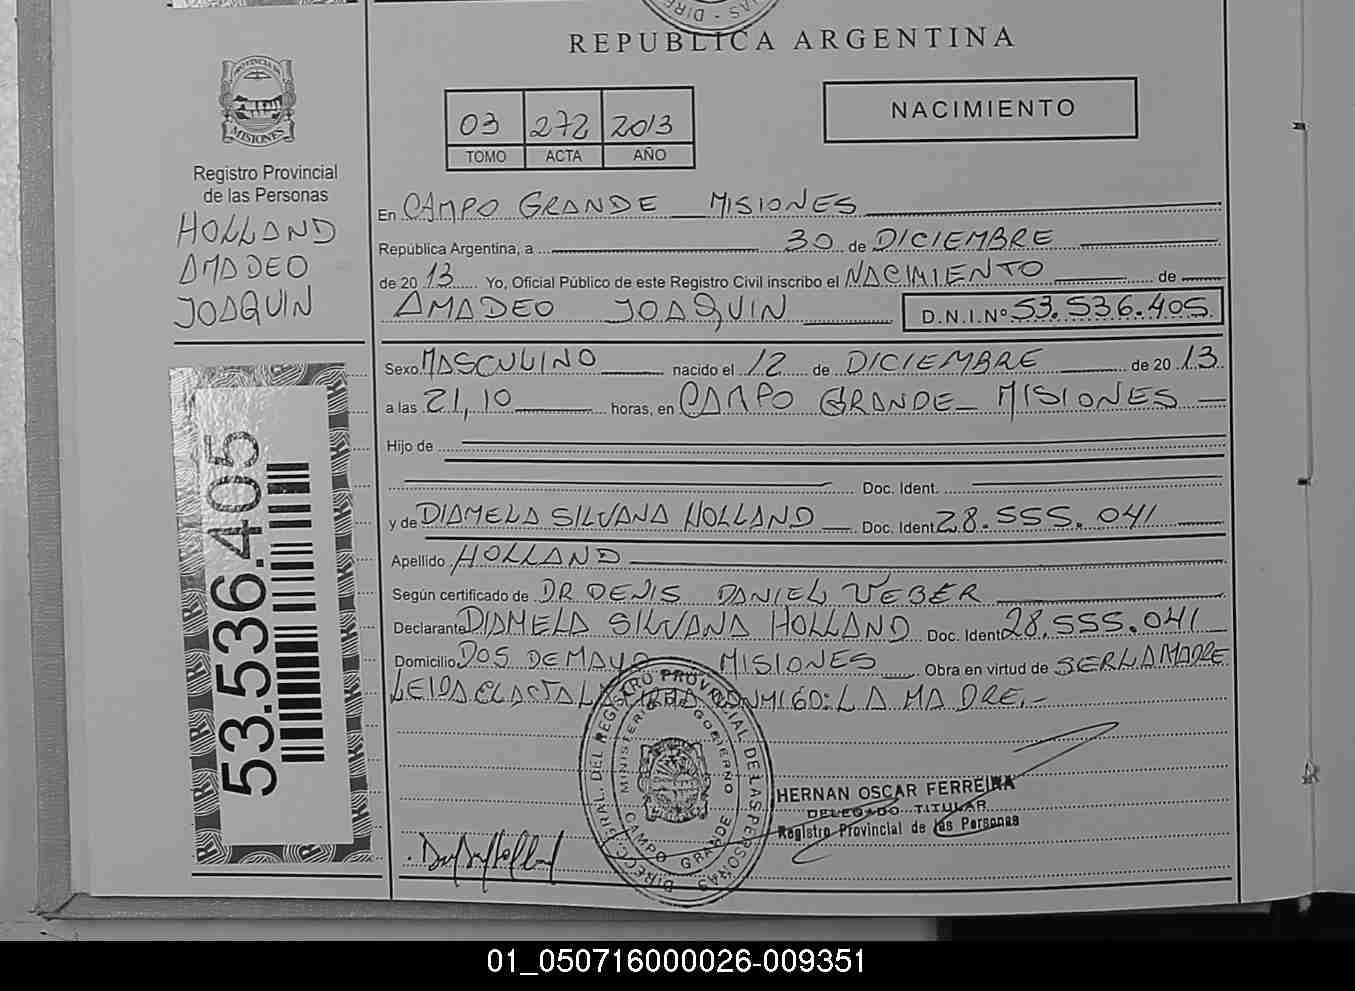 REPUBLICA ARGENTINA
PROVINCIA DE MISIONES
Registro Provincial
de las Personas
HOLLAND
AMADEO
JOAQUIN
53.536.405
03 272 2013
TOMO ACTA AÑO
NACIMIENTO
En CAMPO GRANDE MISIONES
República Argentina, a 30 de DICIEMBRE
de 2013 Yo, Oficial Público de este Registro Civil inscribo el NACIMIENTO de
AMADEO JOAQUIN D.N.I.Nº 53.536.405
Sexo MASCULINO nacido el 12 de DICIEMBRE de 2013
a las 21,10 horas, en CAMPO GRANDE MISIONES
Hijo de
Doc. Ident.
y de DIAMELA SILVANA HOLLAND Doc. Ident 28.555.041
Apellido HOLLAND
Según certificado de DR DENIS DANIEL WEBER
Declarante DIAMELA SILVANA HOLLAND Doc. Ident 28.555.041
Domicilio DOS DE MAYO MISIONES Obra en virtud de SER LA MADRE
LEIDA EL ACTA LA FIRMA CONMIGO: LA MADRE.-
DIRECC. GRAL. DEL REGISTRO PROVINCIAL DE LAS PERSONAS
MINISTERIO DE GOBIERNO
CAMPO GRANDE
HERNAN OSCAR FERREIRA
DELEGADO TITULAR
Registro Provincial de las Personas
01_050716000026-009351